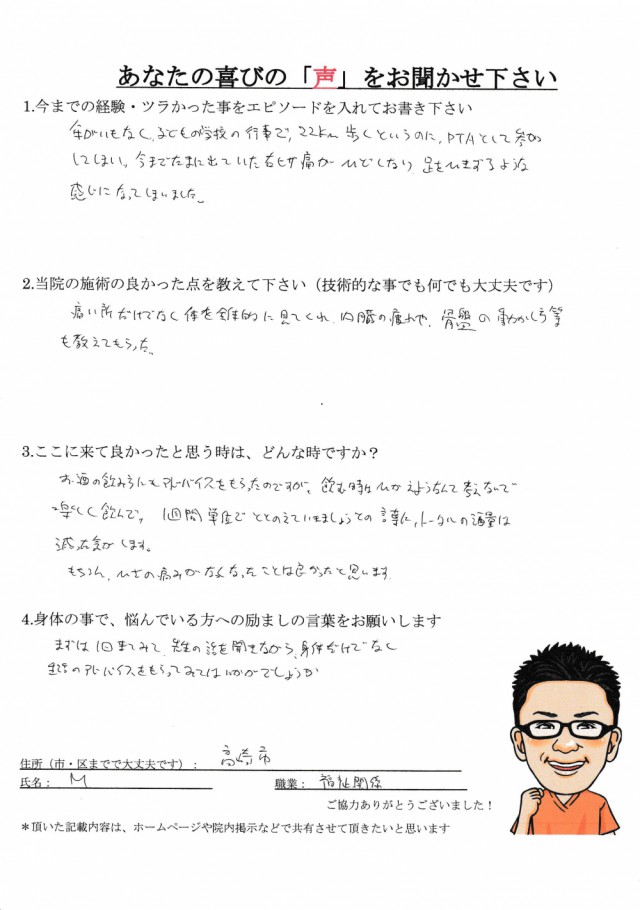 あなたの喜びの「声」をお聞かせ下さい
1.今までの経験・ツラかった事をエピソードを入れてお書き下さい
年がいもなく、子どもの学校の行事で、22km歩くというのに、PTAとして参加
してしまい、今までたまに出ていた右ヒザ痛がひどくなり、足をひきずるような
感じになってしまいました。
2.当院の施術の良かった点を教えて下さい（技術的な事でも何でも大丈夫です）
痛い所だけでなく体を全体的に見てくれ、内臓の疲れや、骨盤の動かし方等
も教えてもらった。
3.ここに来て良かったと思う時は、どんな時ですか？
お酒の飲み方にもアドバイスをもらったのですが、飲む時はひかえようなんて考えないで
楽しく飲んで、1週間単位でととのえていきましょうとの言葉に、トータルの酒量は
減った気がします。
もちろん、ひざの痛みがなくなったことは良かったと思います
4.身体の事で、悩んでいる方への励ましの言葉をお願いします
まずは1回来てみて、先生の話を聞きながら、身体だけでなく
生活のアドバイスをもらってみてはいかがでしょうか
住所（市・区までで大丈夫です）： 高崎市
氏名： M 職業： 福祉関係
ご協力ありがとうございました！
＊頂いた記載内容は、ホームページや院内掲示などで共有させて頂きたいと思います